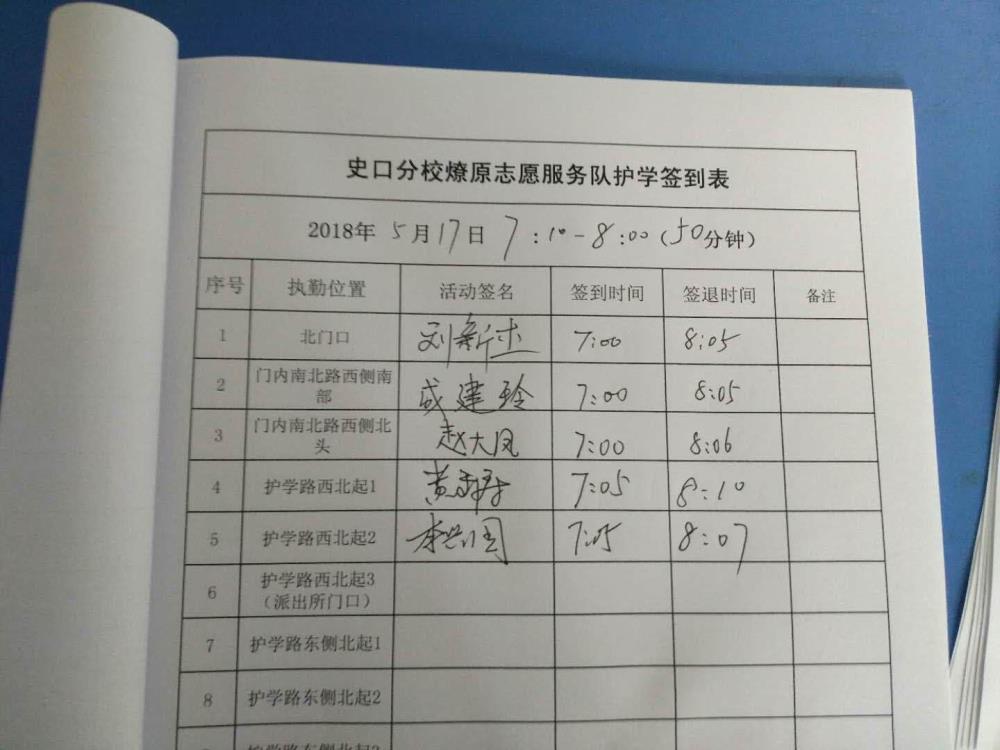 史口分校燎原志愿服务队护学签到表
2018年 5月17日 7:10-8:00(50分钟)
序号 执勤位置 活动签名 签到时间 签退时间 备注
1 北门口 刘新杰 7:00 8:05
2 门内南北路西侧南
部 成建玲 7:00 8:05
3 门内南北路西侧北
头 赵大凤 7:00 8:06
4 护学路西北起1 黄 7:05 8:10
5 护学路西北起2 李兴国 7:05 8:07
6 护学路西北起3
(派出所门口)
7 护学路东侧北起1
8 护学路东侧北起2